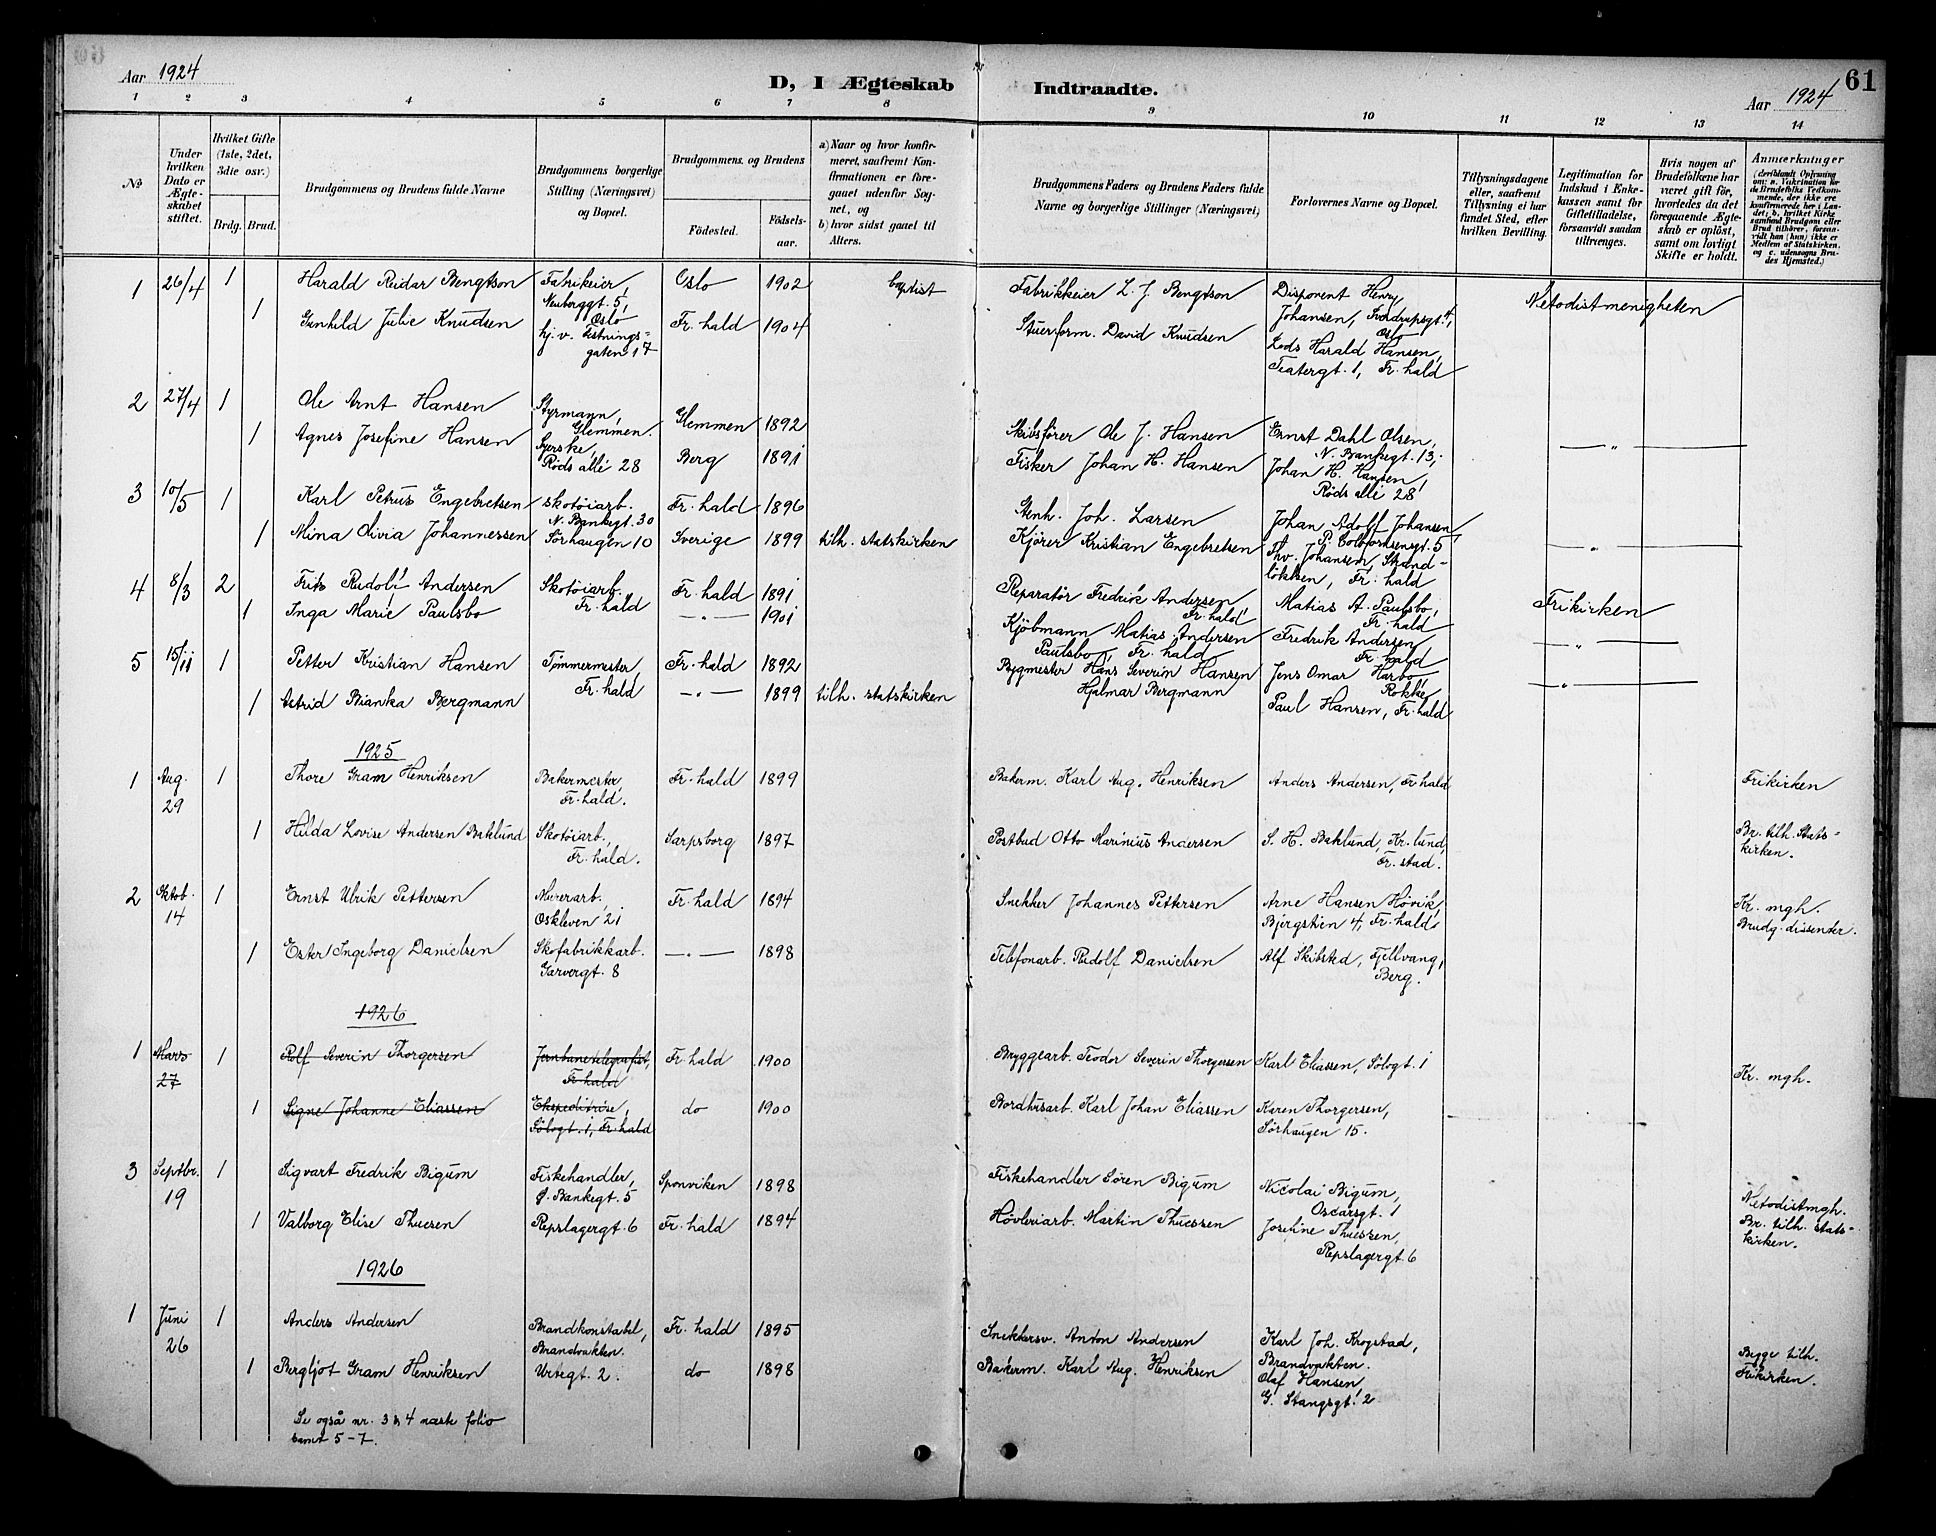 Aar 1924
D, I Ægteskab Indtraadte.
Aar 1924
61
1 2 3 4 5 6 7 8 9 10 11 12 13 14
№
Under hvilken Dato er Ægteskabet stiftet.
Hvilket Gifte (1ste, 2det, 3die osv.)
Brdg. Brud.
Brudgommens og Brudens fulde Navne
Brudgommens borgerlige Stilling (Næringsvei) og Bopæl.
Brudgommens og Brudens
Fødested.
Fødsels-aar.
a) Naar og hvor konfirmeret, saafremt Konfirmationen er foregaaet udenfor Sognet, og
b) hvor sidst gaaet til Alters.
Brudgommens Faders og Brudens Faders fulde Navne og borgerlige Stillinger (Næringsvei)
Forlovernes Navne og Bopæl.
Tillysningsdagene eller, saafremt Tillysning ei har fundet Sted, efter hvilken Bevilling.
Legitimation for Indskud i Enkekassen samt for Giftetilladelse, forsaavidt saadan tiltrænges.
Hvis nogen af Brudefolkene har været gift før, hvorledes da det foregaaende Ægteskab er opløst, samt om lovligt Skifte er holdt.
Anmærkninger
1 26/4 1 Harald Reidar Bengtson Fabrikeier, Neuberggt. 5, Oslo Oslo 1902 baptist Fabrikkeier L. J. Bengtson Disponent Henry Johansen, Sverdrupsgt. 4, Oslo Metodistmenigheten
1 Gunhild Julie Knudsen hj. v. Festnings-gaten 17 Fr.hald 1904 Stuerform. David Knudsen Lods Harald Hansen, Teatergt. 1, Fr.hald
2 27/4 1 Ole Arnt Hansen Styrmann, Glemmen. Glemmen 1892 Skibsfører Ole J. Hansen Ernst Dahl Olsen, N. Bankegt. 13, — " —
1 Agnes Josefine Hansen Syerske, Røds allé 28 Berg 1891 Fisker Johan H. Hansen Johan H. Hansen, Røds allé 28
3 10/5 1 Karl Petrus Engebretsen skotøiarb. N. Bankegt. 30 Fr.hald 1896 Stenh. Joh. Larsen Johan Adolf Johansen P. Colbjørnsensgt. 5 — " —
1 Mina Olivia Johannessen Sørhaugen 10 Sverige 1899 tilh. statskirken Kjører Kristian Engebretsen Thv. Johansen, Strand-løkken, Fr.hald
4 8/3 2 Frits Rudolf Andersen Skotøiarb. Fr.hald Fr.hald 1891 Reparatør Fredrik Andersen Fr.hald Matias A. Paulsbo, Fr.hald Frikirken
1 Inga Marie Paulsbo — " — 1901 Kjøbmann Matias Andersen Paulsbo, Fr.hald Fredrik Andersen Fr.hald — " —
5 15/11 1 Petter Kristian Hansen Tømmermester, Fr.hald Fr.hald 1892 Bygmester Hans Severin Hansen Jens Omar Harbo Rokke — " —
1 Astrid Bianka Bergmann — " — 1899 tilh. statskirken Hjalmar Bergmann Paul Hansen, Fr.hald
1925
1 Aug. 29 1 Thore Gram Henriksen Bakermester, Fr.hald. Fr.hald 1899 Bakerm. Karl Aug. Henriksen Anders Andersen, Fr.hald Frikirken
1 Hilda Lovise Andersen Baklund Skotøiarb., Fr.hald. Sarpsborg 1897 Postbud Otto Marinius Andersen S. H. Baklund, Kr.lund, Fr.stad. Br. tilh. Stats-kirken.
2 Oktob. 14 1 Ernst Ulrik Pettersen Murerarb., Oskleven 21 Fr.hald 1894 Snekker Johannes Pettersen Arne Hansen Høvik, Bjørgstien 4, Fr.hald Kr. mgh. Brudg. dissenter.
1 Ester Ingeborg Danielsen Skofabrikkarb. Garvergt. 8 — " — 1898 Telefonarb. Rudolf Danielsen Alf Skibsted, Fjellvang, Berg.
1926
1 Mars 27 1 Rolf Severin Thorgersen Jernbanetelegrafist, Fr.hald Fr.hald 1900 Bryggearb. Teodor Severin Thorgersen Karl Eliassen, Sølogt. 1 Kr. mgh.
1 Signe Johanne Eliassen Ekspeditrise, Sølogt. 1, Fr.hald do 1900 Bordhusarb. Karl Johan Eliassen Karen Thorgersen, Sørhaugen 15.
3 Septbr. 19 1 Sigvart Fredrik Bigum Fiskehandler, Ø. Bankegt. 5 Sponviken 1898 Fiskehandler Søren Bigum Nicolai Bigum, Oscarsgt. 1 Metodistmgh. Br. tilh. stats-kirken.
1 Valborg Elise Thuesen Repslagergt. 6 Fr.hald 1894 Høvleriarb. Martin Thuessen Josefine Thuessen, Repslagergt. 6
1926
1 Juni 26 1 Anders Andersen Brandkonstabel, Brandvakten. Fr.hald 1895 Snekkersv. Anton Andersen Karl Joh. Krogstad, Brandvakten. Begge tilh. Frikirken.
1 Bergljot Gram Henriksen Urtegt. 2. do 1898 Bakerm. Karl Aug. Henriksen Olaf Hansen G. Stangsgt. 2
Se også nr. 3 & 4 næste folio
samt 5-7.